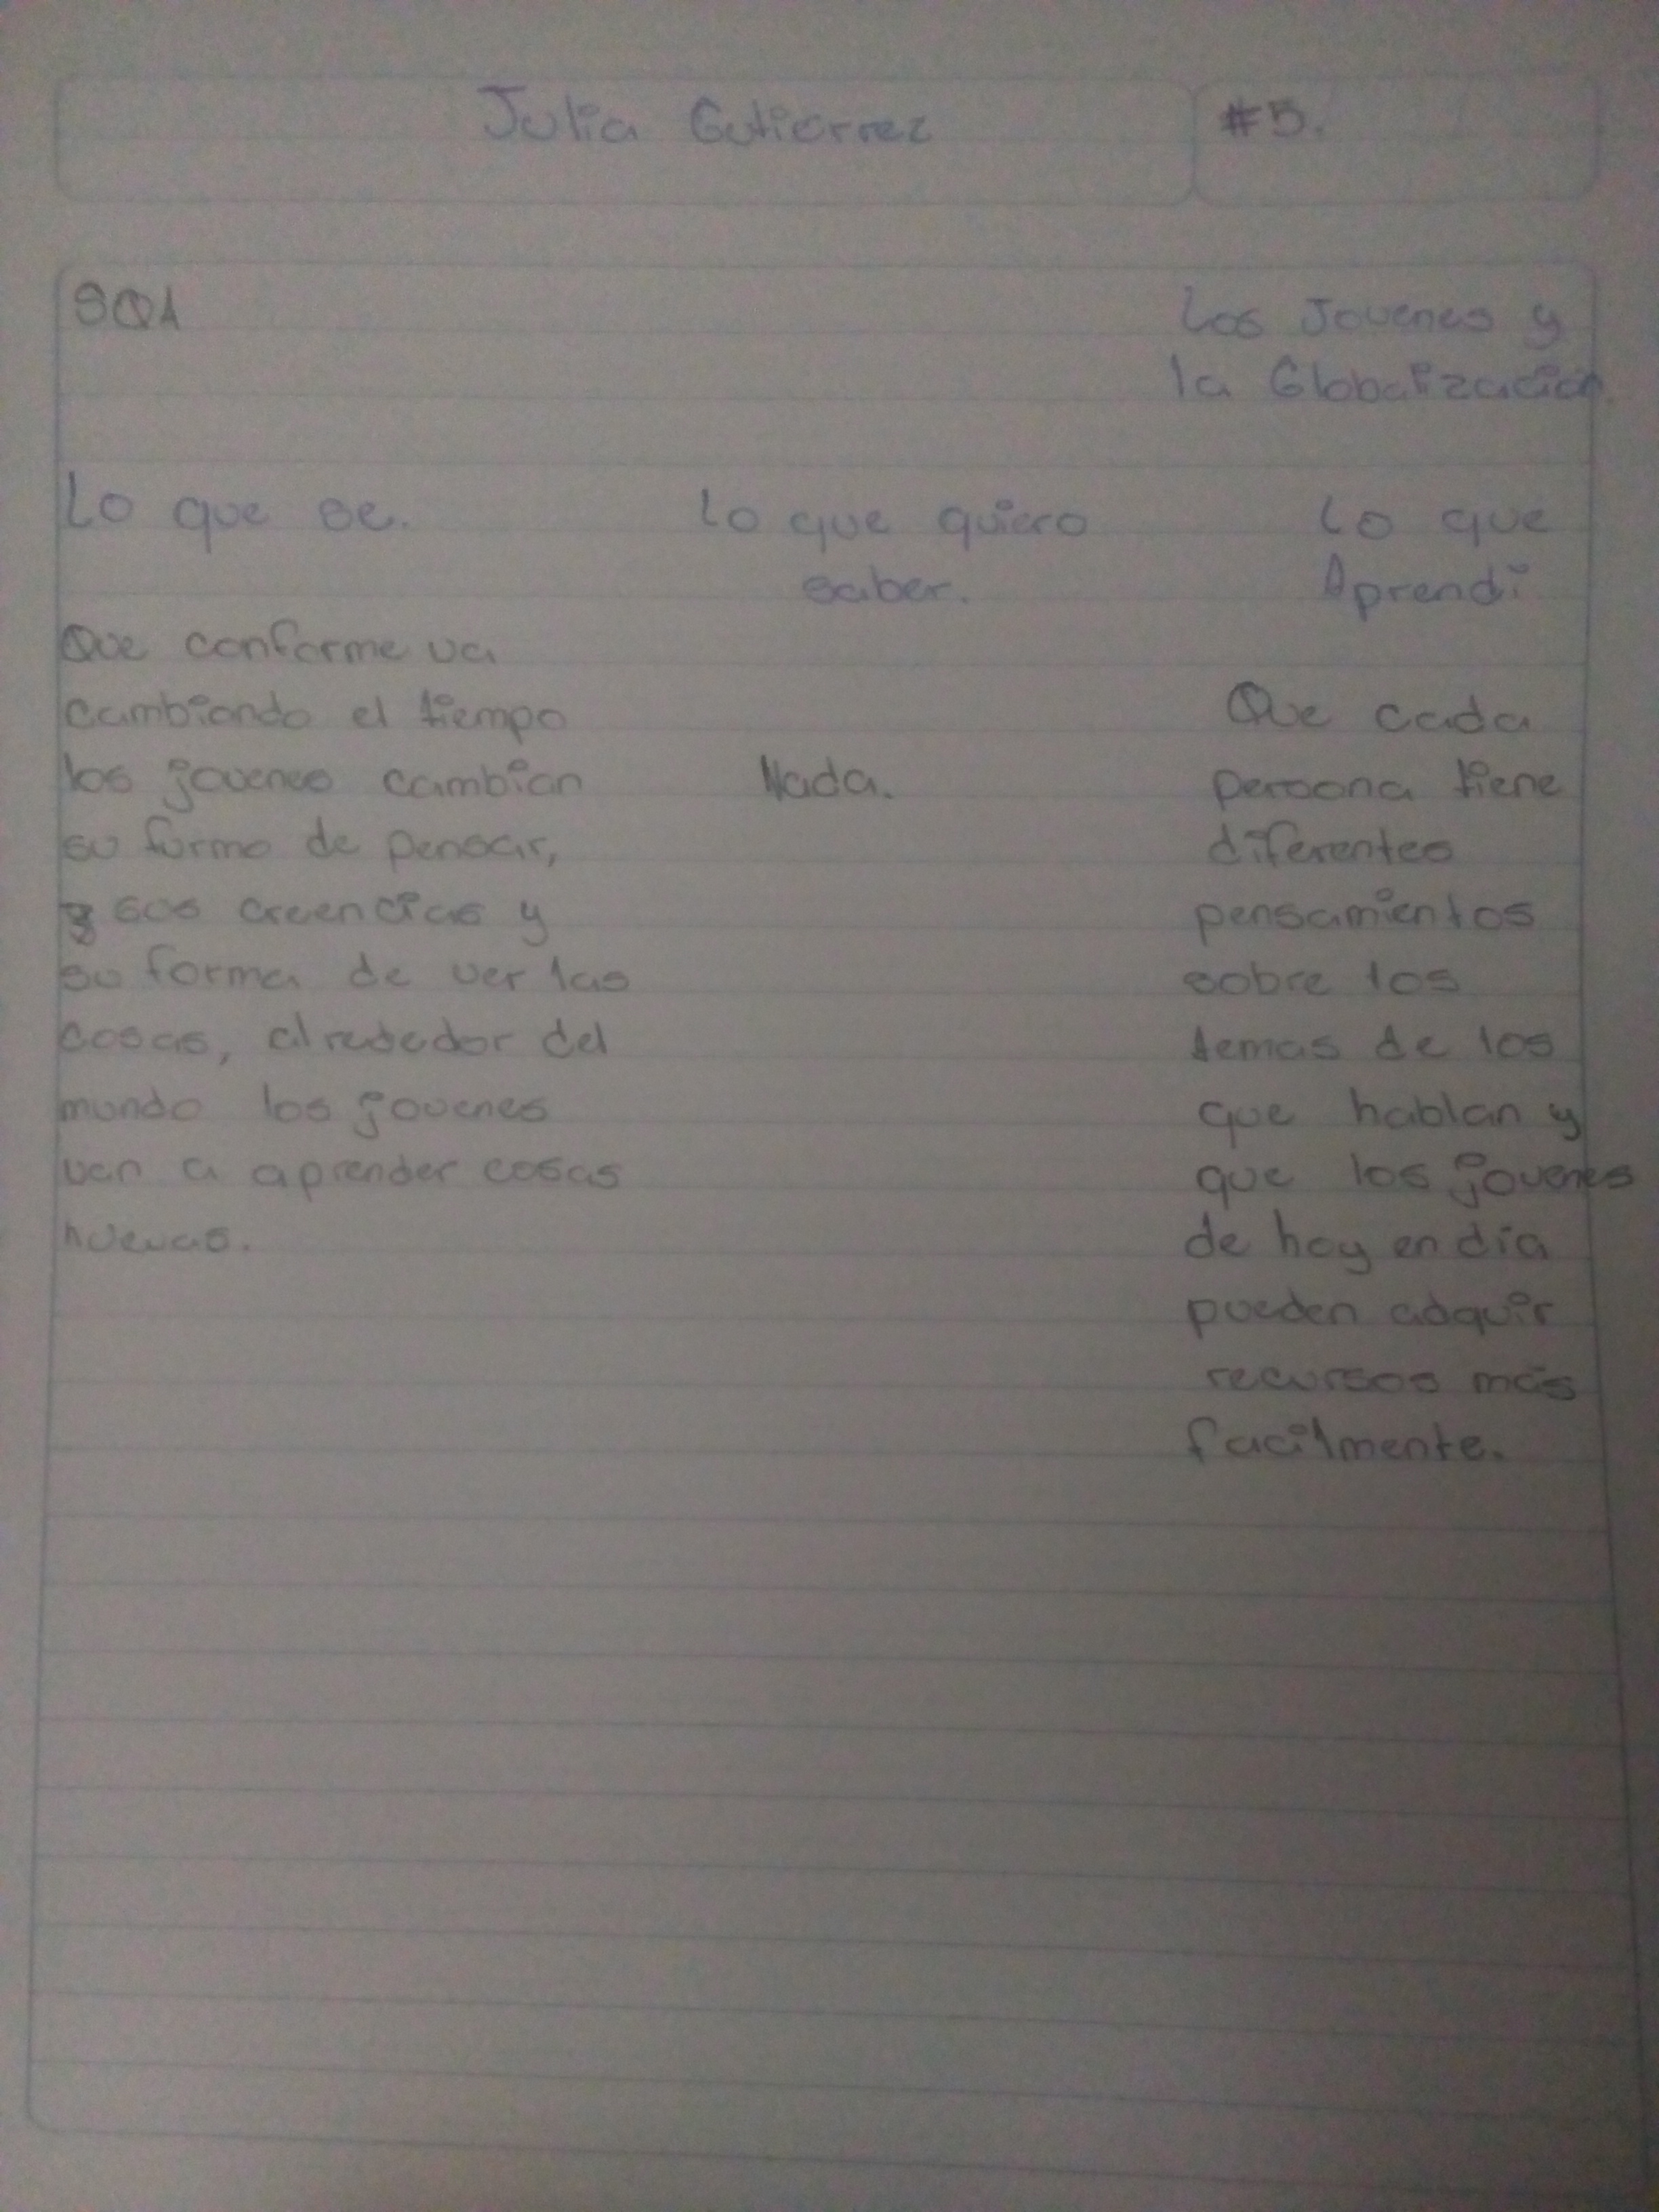 Julia Gutierrez
#5.
SQA
Los Jovenes y
la Globalización.
Lo que se.
Que conforme va
cambiando el tiempo
los jovenes cambian
su forma de pensar,
sus creencias y
su forma de ver las
cosas, alrededor del
mundo los jovenes
van a aprender cosas
nuevas.
Lo que quiero
saber.
Nada.
Lo que
Aprendi
Que cada
persona tiene
diferentes
pensamientos
sobre los
temas de los
que hablan y
que los jovenes
de hoy en dia
pueden adquir
recursos más
facilmente.